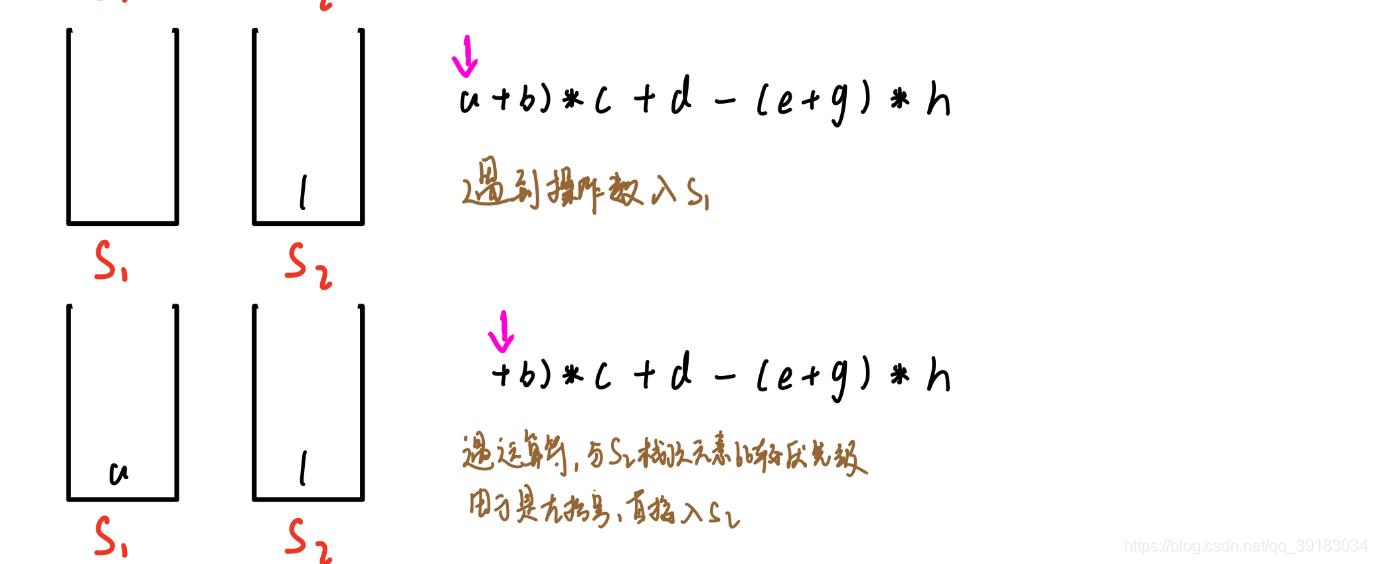 S1 S2
a+b)*c+d-(e+g)*h
l
遇到操作数入S1
S1 S2
+b)*c+d-(e+g)*h
遇运算符,与S2栈顶元素比较优先级
a l
由于是左括号,直接入S2
S1 S2
https://blog.csdn.net/qq_39183034